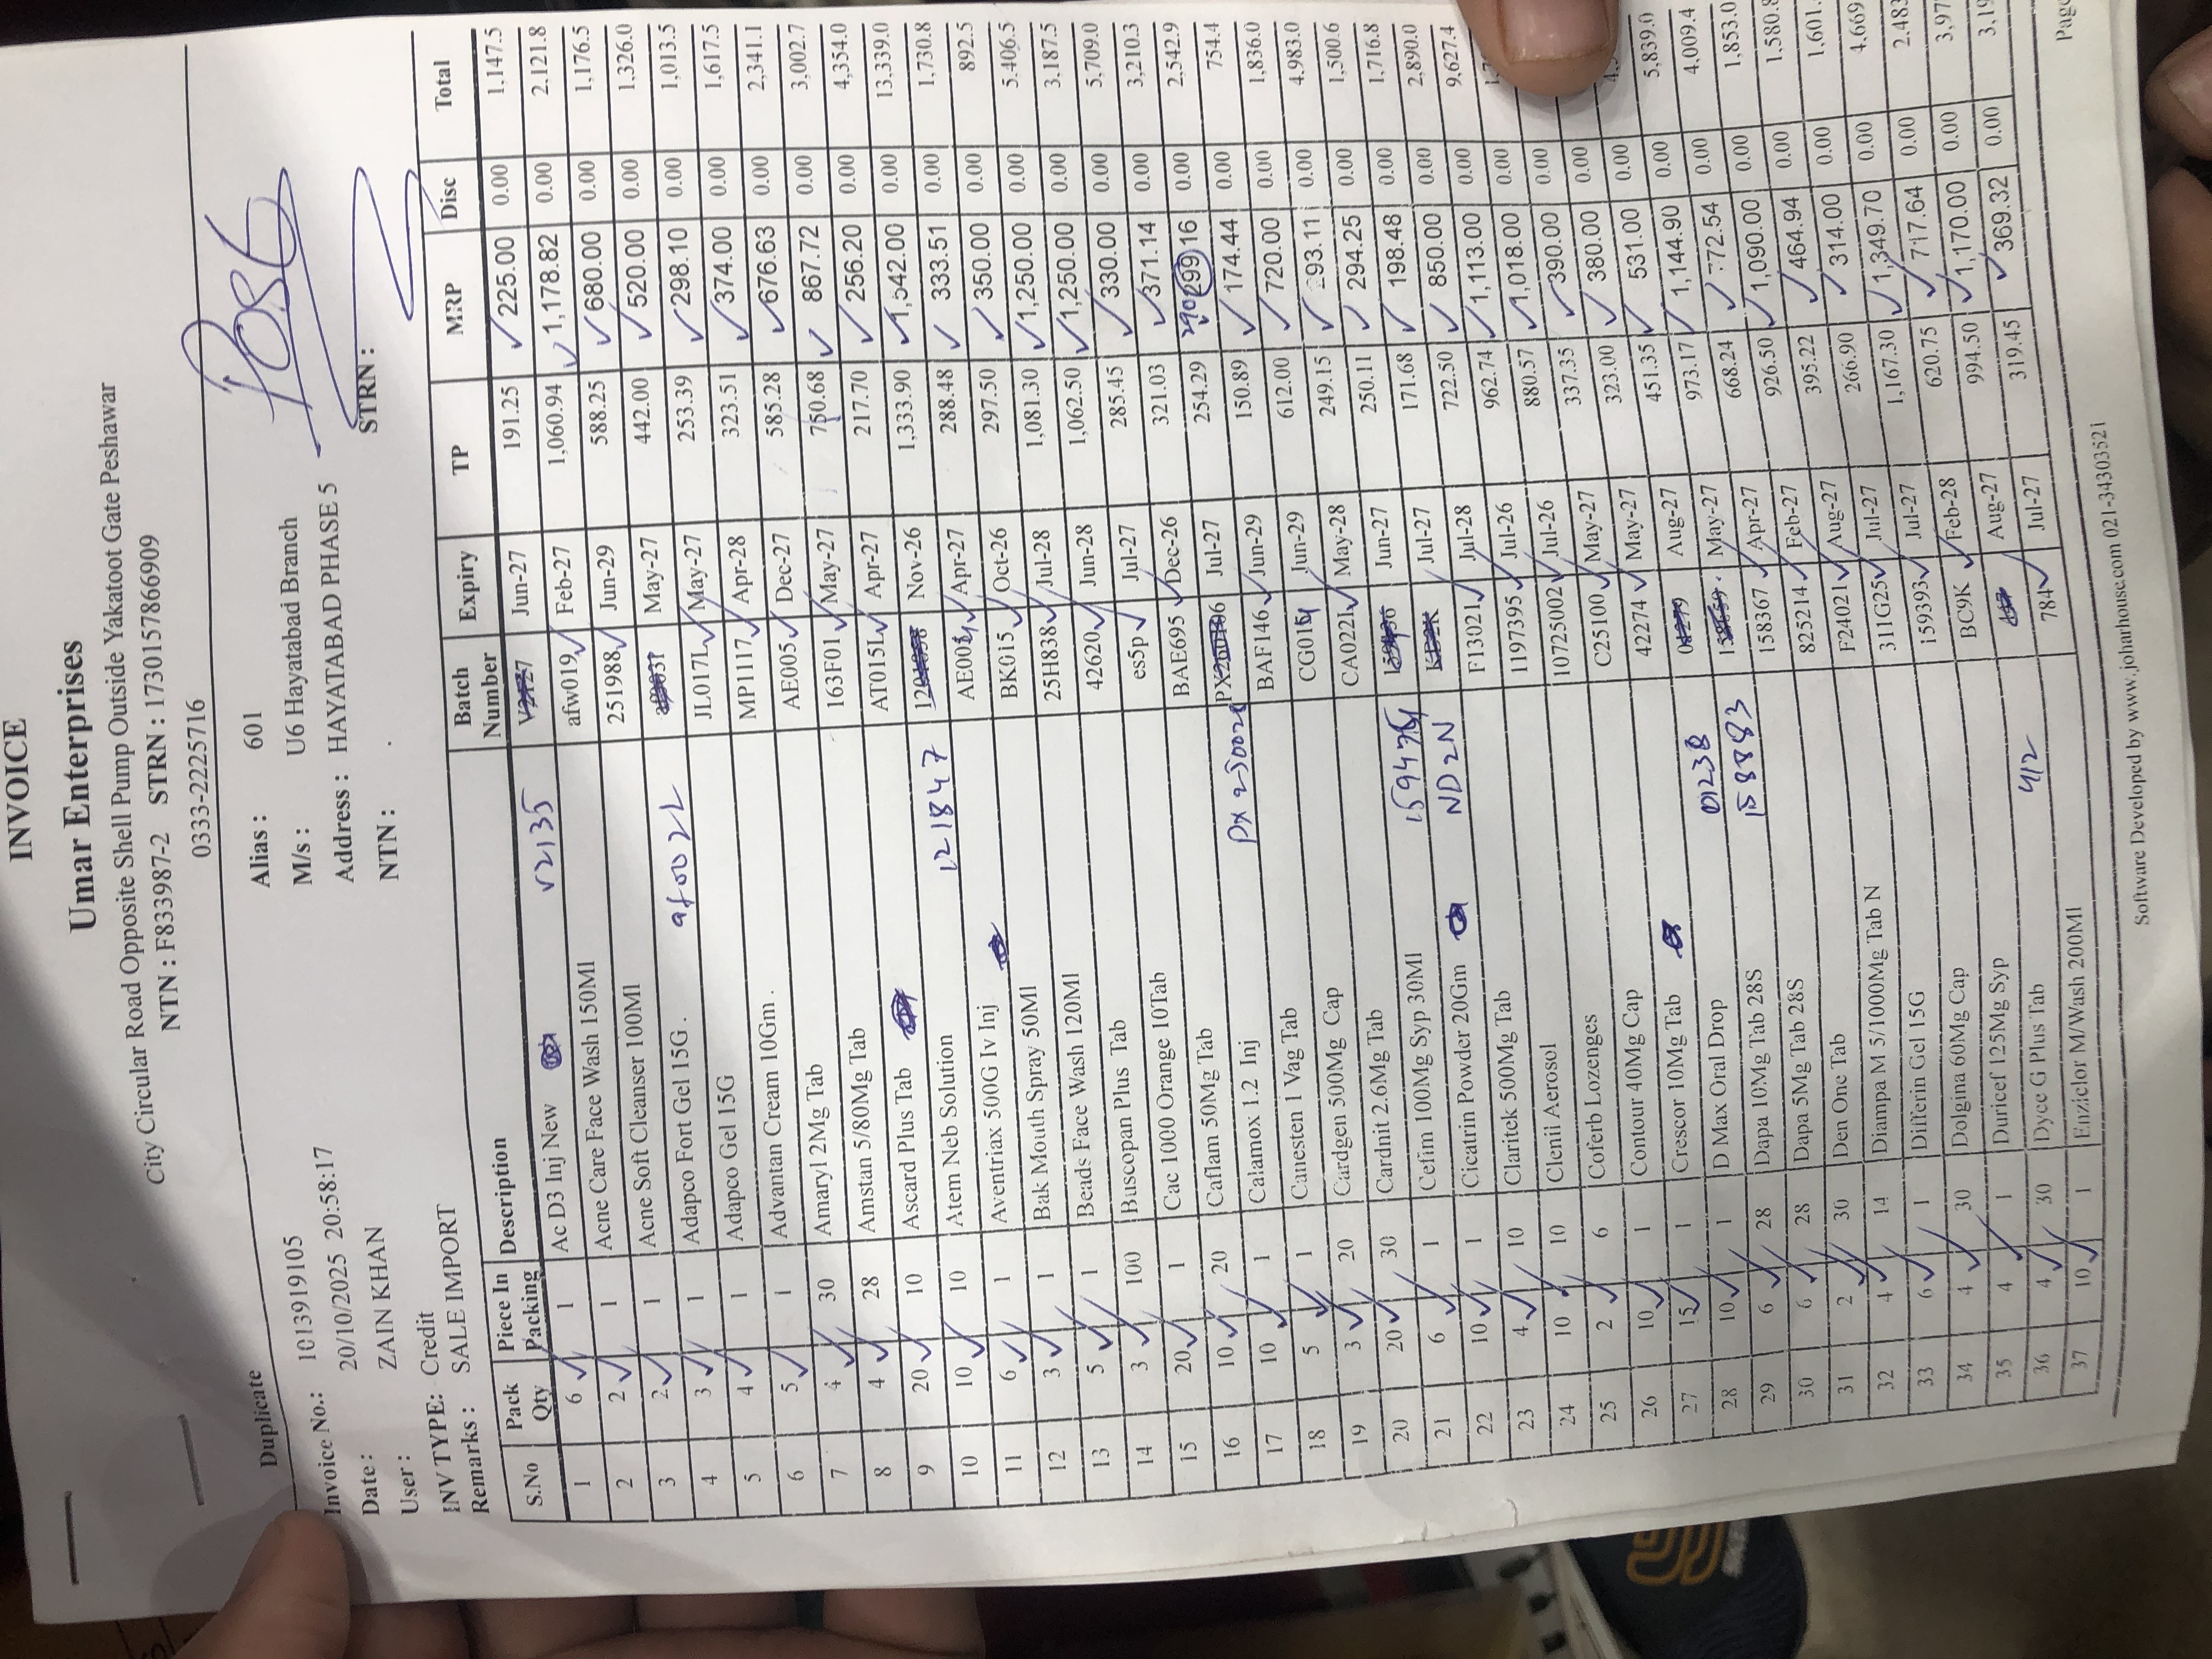 INVOICE
Umar Enterprises
City Circular Road Opposite Shell Pump Outside Yakatoot Gate Peshawar
NTN : F833987-2 STRN : 1730157866909
0333-2225716
Duplicate
Invoice No.: 1013919105
Date : 20/10/2025 20:58:17
User : ZAIN KHAN
INV TYPE: Credit
Remarks : SALE IMPORT
Alias : 601
M/s : U6 Hayatabad Branch
Address : HAYATABAD PHASE 5
NTN : .
STRN :
S.No Pack Qty Piece In Packing Description Batch Number Expiry TP MRP Disc Total
1 6 1 Ac D3 Inj New V2135 Jun-27 191.25 225.00 0.00 1,147.5
2 2 1 Acne Care Face Wash 150Ml afw019 Feb-27 1,060.94 1,178.82 0.00 2,121.8
3 2 1 Acne Soft Cleanser 100Ml 251988 Jun-29 588.25 680.00 0.00 1,176.5
4 3 1 Adapco Fort Gel 15G . af002L May-27 442.00 520.00 0.00 1,326.0
5 4 1 Adapco Gel 15G JL017L May-27 253.39 298.10 0.00 1,013.5
6 5 1 Advantan Cream 10Gm . MP1117 Apr-28 323.51 374.00 0.00 1,617.5
7 4 30 Amaryl 2Mg Tab AE005 Dec-27 585.28 676.63 0.00 2,341.1
8 4 28 Amstan 5/80Mg Tab 163F01 May-27 750.68 867.72 0.00 3,002.7
9 20 10 Ascard Plus Tab AT015L Apr-27 217.70 256.20 0.00 4,354.0
10 10 10 Atem Neb Solution 121847 Nov-26 1,333.90 1,542.00 0.00 13,339.0
11 6 1 Aventriax 500G Iv Inj Apr-27 288.48 333.51 0.00 1,730.8
12 3 1 Bak Mouth Spray 50Ml BK015 Oct-26 297.50 350.00 0.00 892.5
13 5 1 Beads Face Wash 120Ml 25H838 Jul-28 1,081.30 1,250.00 0.00 5,406.5
14 3 100 Buscopan Plus Tab 42620 Jun-28 1,062.50 1,250.00 0.00 3,187.5
15 20 1 Cac 1000 Orange 10Tab es5p Jul-27 285.45 330.00 0.00 5,709.0
16 10 20 Caflam 50Mg Tab BAE695 Dec-26 321.03 371.14 0.00 3,210.3
17 10 1 Calamox 1.2 Inj Jul-27 254.29 290 299.16 0.00 2,542.9
18 5 1 Canesten 1 Vag Tab BAF146 Jun-29 150.89 174.44 0.00 754.4
19 3 20 Cardgen 500Mg Cap Jun-29 612.00 720.00 0.00 1,836.0
20 20 30 Cardnit 2.6Mg Tab CA022L May-28 249.15 293.11 0.00 4,983.0
21 6 1 Cefim 100Mg Syp 30Ml Jun-27 250.11 294.25 0.00 1,500.6
22 10 1 Cicatrin Powder 20Gm ND2N Jul-27 171.68 198.48 0.00 1,716.8
23 4 10 Claritek 500Mg Tab F13021 Jul-28 722.50 850.00 0.00 2,890.0
24 10 10 Clenil Aerosol 1197395 Jul-26 962.74 1,113.00 0.00 9,627.4
25 2 6 Coferb Lozenges 10725002 Jul-26 880.57 1,018.00 0.00
26 10 1 Contour 40Mg Cap C25100 May-27 337.35 390.00 0.00
27 15 1 Crescor 10Mg Tab 42274 May-27 323.00 380.00 0.00
28 10 1 D Max Oral Drop 01238 Aug-27 451.35 531.00 0.00
29 6 28 Dapa 10Mg Tab 28S 158883 May-27 973.17 1,144.90 0.00 5,839.0
30 6 28 Dapa 5Mg Tab 28S 158367 Apr-27 668.24 772.54 0.00 4,009.4
31 2 30 Den One Tab 825214 Feb-27 926.50 1,090.00 0.00 1,853.0
32 4 14 Diampa M 5/1000Mg Tab N F24021 Aug-27 395.22 464.94 0.00 1,580.8
33 6 1 Differin Gel 15G 311G25 Jul-27 266.90 314.00 0.00 1,601.
34 4 30 Dolgina 60Mg Cap 159393 Jul-27 1,167.30 1,349.70 0.00 4,669
35 4 1 Duricef 125Mg Syp BC9K Feb-28 620.75 717.64 0.00 2,483
36 4 30 Dyce G Plus Tab 412 Aug-27 994.50 1,170.00 0.00 3,97
37 10 1 Enziclor M/Wash 200Ml 784 Jul-27 319.45 369.32 0.00 3,19
Page
Software Developed by www.joharhouse.com 021-34303521